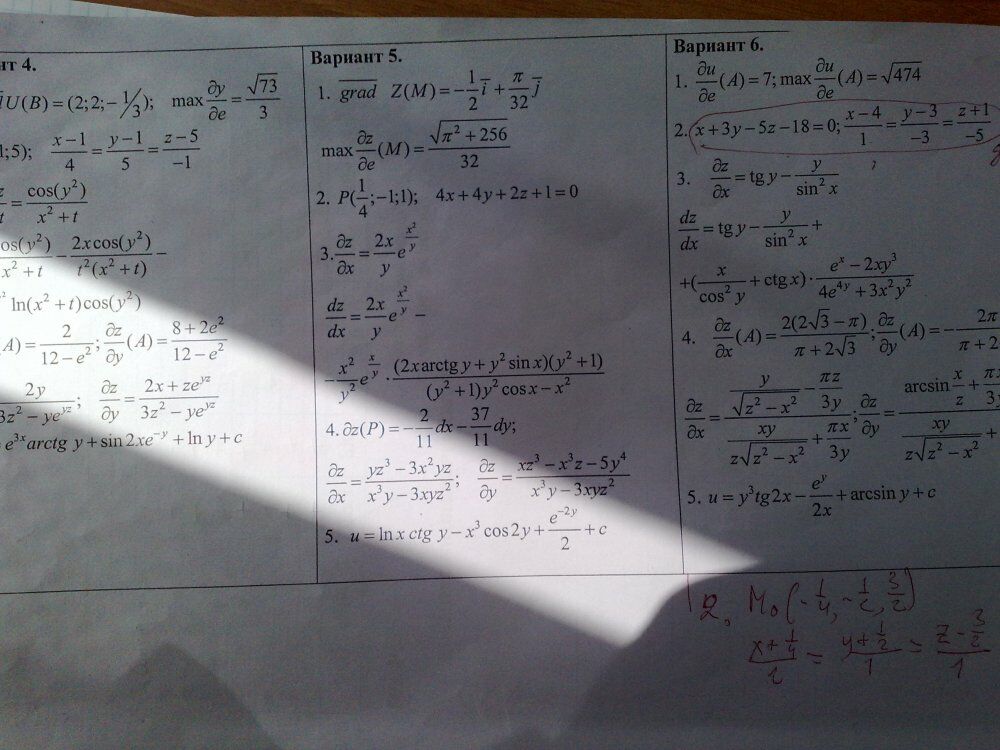 нт 4.
U(B) = (2;2;-1/3); max ∂y/∂e = √73/3
1;5); (x-1)/4 = (y-1)/5 = (z-5)/-1
= cos(y²)/(x²+t)
cos(y²)/(x²+t) - 2x cos(y²)/(t²(x²+t)) -
ln(x²+t)cos(y²)
A) = 2/(12-e²); ∂z/∂y (A) = (8+2e²)/(12-e²)
2y/(3z²-ye^(yz)); ∂z/∂y = (2x+ze^(yz))/(3z²-ye^(yz))
= e^(3x) arctg y + sin 2xe^(-y) + ln y + c
Вариант 5.
1. grad Z(M) = -1/2 i + π/32 j
max ∂z/∂e (M) = √(π²+256)/32
2. P(1/4;-1;1); 4x+4y+2z+1=0
3. ∂z/∂x = 2x/y e^(x²/y)
dz/dx = 2x/y e^(x²/y) -
-x²/y² e^(x/y) · (2x arctg y + y² sin x)(y²+1)/((y²+1)y² cos x - x²)
4. ∂z(P) = -2/11 dx - 37/11 dy;
∂z/∂x = (yz³-3x²yz)/(x³y-3xyz²); ∂z/∂y = (xz³-x³z-5y⁴)/(x³y-3xyz²)
5. u = ln x ctg y - x³ cos 2y + e^(-2y)/2 + c
Вариант 6.
1. ∂u/∂e (A) = 7; max ∂u/∂e (A) = √474
2. x+3y-5z-18=0; (x-4)/1 = (y-3)/-3 = (z+1)/-5
3. ∂z/∂x = tg y - y/sin² x
dz/dx = tg y - y/sin² x +
+(x/cos² y + ctg x) · (e^x - 2xy³)/(4e^(4y) + 3x²y²)
4. ∂z/∂x (A) = 2(2√3-π)/(π+2√3); ∂z/∂y (A) = - 2π/(π+2
∂z/∂x = (y/√(z²-x²) - πz/3y)/(xy/(z√(z²-x²)) + πx/3y); ∂z/∂y = (arcsin x/z + πx/3y)/(xy/(z√(z²-x²)) +
5. u = y³ tg 2x - e^y/2x + arcsin y + c
2. M₀(-1/4, -1/2, 3/2)
(x+1/4)/2 = (y+1/2)/1 = (z-3/2)/1